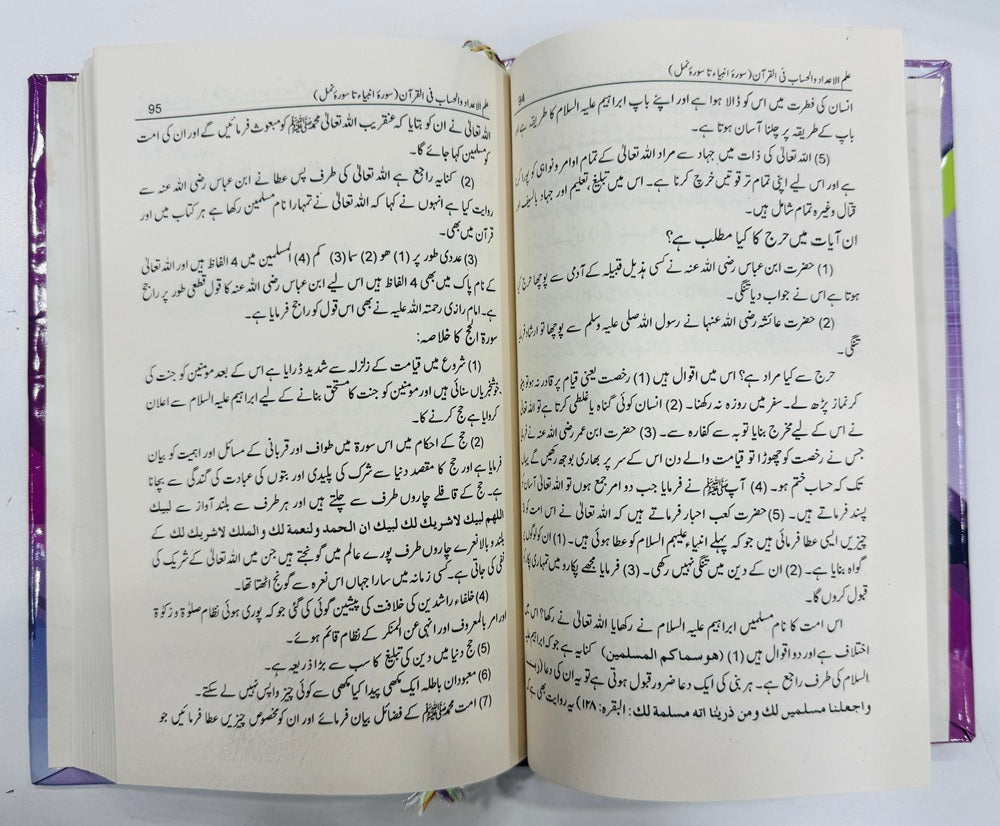 علم الاعداد والحساب فی القرآن (سورۂ انبیاء تا سورۂ نمل)
94
انسان کی فطرت میں اس کو ڈالا ہوا ہے اور اپنے باپ ابراہیم علیہ السلام کا طریقہ ہے اور
باپ کے طریقہ پر چلنا آسان ہوتا ہے۔
(5) اللہ تعالیٰ کی ذات میں جہاد سے مراد اللہ تعالیٰ کے تمام اوامر ونواہی کو پورا کرنا
ہے اور اس لیے اپنی تمام تر قوتیں خرچ کرنا ہے۔ اس میں تبلیغ، تعلیم اور جہاد بالسیف
قتال وغیرہ تمام شامل ہیں۔
ان آیات میں حرج کا کیا مطلب ہے؟
(1) حضرت ابن عباس رضی اللہ عنہ نے کسی ہذیل قبیلہ کے آدمی سے پوچھا حرج کیا
ہوتا ہے اس نے جواب دیا تنگی۔
(2) حضرت عائشہ رضی اللہ عنہا نے رسول اللہ صلی علیہ وسلم سے پوچھا تو ارشاد فرمایا
تنگی۔
حرج سے کیا مراد ہے؟ اس میں اقوال ہیں (1) رخصت یعنی قیام پر قادر نہ ہو تو بیٹھ
کر نماز پڑھ لے۔ سفر میں روزہ نہ رکھنا۔ (2) انسان کوئی گناہ یا غلطی کرتا ہے تو اللہ تعالیٰ
نے اس کے لیے مخرج بنایا توبہ سے کفارہ سے۔ (3) حضرت ابن عمر رضی اللہ عنہ نے فرمایا
جس نے رخصت کو چھوڑا تو قیامت والے دن اس کے سر پر بھاری بوجھ رکھیں گے یہاں
تک کہ حساب ختم ہو۔ (4) آپ ﷺ نے فرمایا جب دو امر جمع ہوں تو اللہ تعالیٰ آسان
پسند فرماتے ہیں۔ (5) حضرت کعب احبار فرماتے ہیں کہ اللہ تعالیٰ نے اس امت کو
چیزیں ایسی عطا فرمائی ہیں جو کہ پہلے انبیاء علیہم السلام کو عطا ہوئی ہیں۔ (1) ان کو لوگوں پر
گواہ بنایا ہے۔ (2) ان کے دین میں تنگی نہیں رکھی۔ (3) فرمایا مجھے پکارو میں تمہاری پکار
قبول کروں گا۔
اس امت کا نام مسلمین ابراہیم علیہ السلام نے رکھا یا اللہ تعالیٰ نے رکھا؟ اس میں
اختلاف ہے اور دو اقوال ہیں (1) (ھو سماکم المسلمین) کنایہ ہے جو کہ ابراہیم علیہ
السلام کی طرف راجع ہے۔ ہر نبی کی ایک دعا ضرور قبول ہوتی ہے تو یہ ان کی دعا (ربنا
واجعلنا مسلمین لک ومن ذریتنا اتہ مسلمة لک: البقرہ: ۱۲۸) یہ روایت بھی ہے کہ
علم الاعداد والحساب فی القرآن (سورۂ انبیاء تا سورۂ نمل)
95
اللہ تعالیٰ نے ان کو بتایا کہ عنقریب اللہ تعالیٰ محمد ﷺ کو مبعوث فرمائیں گے اور ان کی امت
کو مسلمین کہا جائے گا۔
(2) کنایہ راجع ہے اللہ تعالیٰ کی طرف پس عطا نے ابن عباس رضی اللہ عنہ سے
روایت کیا ہے انہوں نے کہا کہ اللہ تعالیٰ نے تمہارا نام مسلمین رکھا ہے ہر کتاب میں اور
قرآن میں بھی۔
(3) عددی طور پر (1) ھو (2) سما (3) کم (4) المسلمین میں 4 الفاظ ہیں اور اللہ تعالیٰ
کے نام پاک میں بھی 4 الفاظ ہیں اس لیے ابن عباس رضی اللہ عنہ کا قول قطعی طور پر راجح
ہے۔ امام رازی رحمتہ اللہ علیہ نے بھی اس قول کو راجح فرمایا ہے۔
سورۃ الحج کا خلاصہ:
(1) شروع میں قیامت کے زلزلہ سے شدید ڈرایا ہے اس کے بعد مومنین کو جنت کی
خوشخبریاں سنائی ہیں اور مومنین کو جنت کا مستحق بنانے کے لیے ابراہیم علیہ السلام سے اعلان
کروایا ہے حج کرنے کا۔
(2) حج کے احکام میں اس سورۃ میں طواف اور قربانی کے مسائل اور اہمیت کو بیان
فرمایا ہے اور حج کا مقصد دنیا سے شرک کی پلیدی اور بتوں کی عبادت کی گندگی سے بچانا
ہے۔ حج کے قافلے چاروں طرف سے چلتے ہیں اور ہر طرف سے بلند آواز سے لبیک
اللھم لبیک لاشریک لک لبیک ان الحمد ولنعمة لک والملک لاشریک لک کے
بلند وبالا نعرے چاروں طرف پورے عالم میں گونجتے ہیں جن میں اللہ تعالیٰ کے شریک کی
نفی کی جاتی ہے۔ کسی زمانہ میں سارا جہاں اس نعرہ سے گونج اٹھتا تھا۔
(4) خلفاء راشدین کی خلافت کی پیشین گوئی کی گئی جو کہ پوری ہوئی نظام صلوٰۃ و زکوٰۃ
اور امر بالمعروف اور انہی عن المنکر کے نظام قائم ہوئے۔
(5) حج دنیا میں دین کی تبلیغ کا سب سے بڑا ذریعہ ہے۔
(6) معبودان باطلہ ایک مکھی پیدا کیا مکھی سے کوئی چیز واپس نہیں لے سکتے۔
(7) امت محمد ﷺ کے فضائل بیان فرمائے اور ان کو مخصوص چیزیں عطا فرمائیں جو